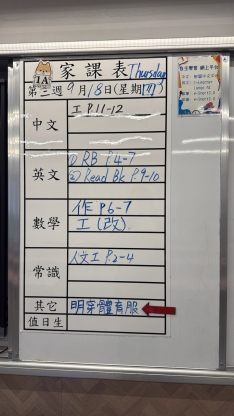 家課表 Thursday
1A
第三週 9月18日(星期四)
中文
工 P.11-12
英文
① RB P.4-7
② Read Bk P.9-10
數學
作 P.6-7
工 (改)
常識
人文工 P.2-4
其它
明穿體育服
值日生
自主學習 網上平台